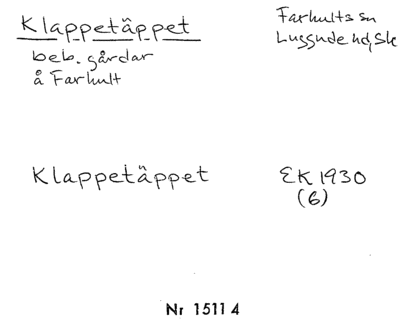 Klappetäppet
beb. gårdar
å Farhult
Farhults sn
Luggude hd, Sk
Klappetäppet
EK 1930
(6)
Nr 15114